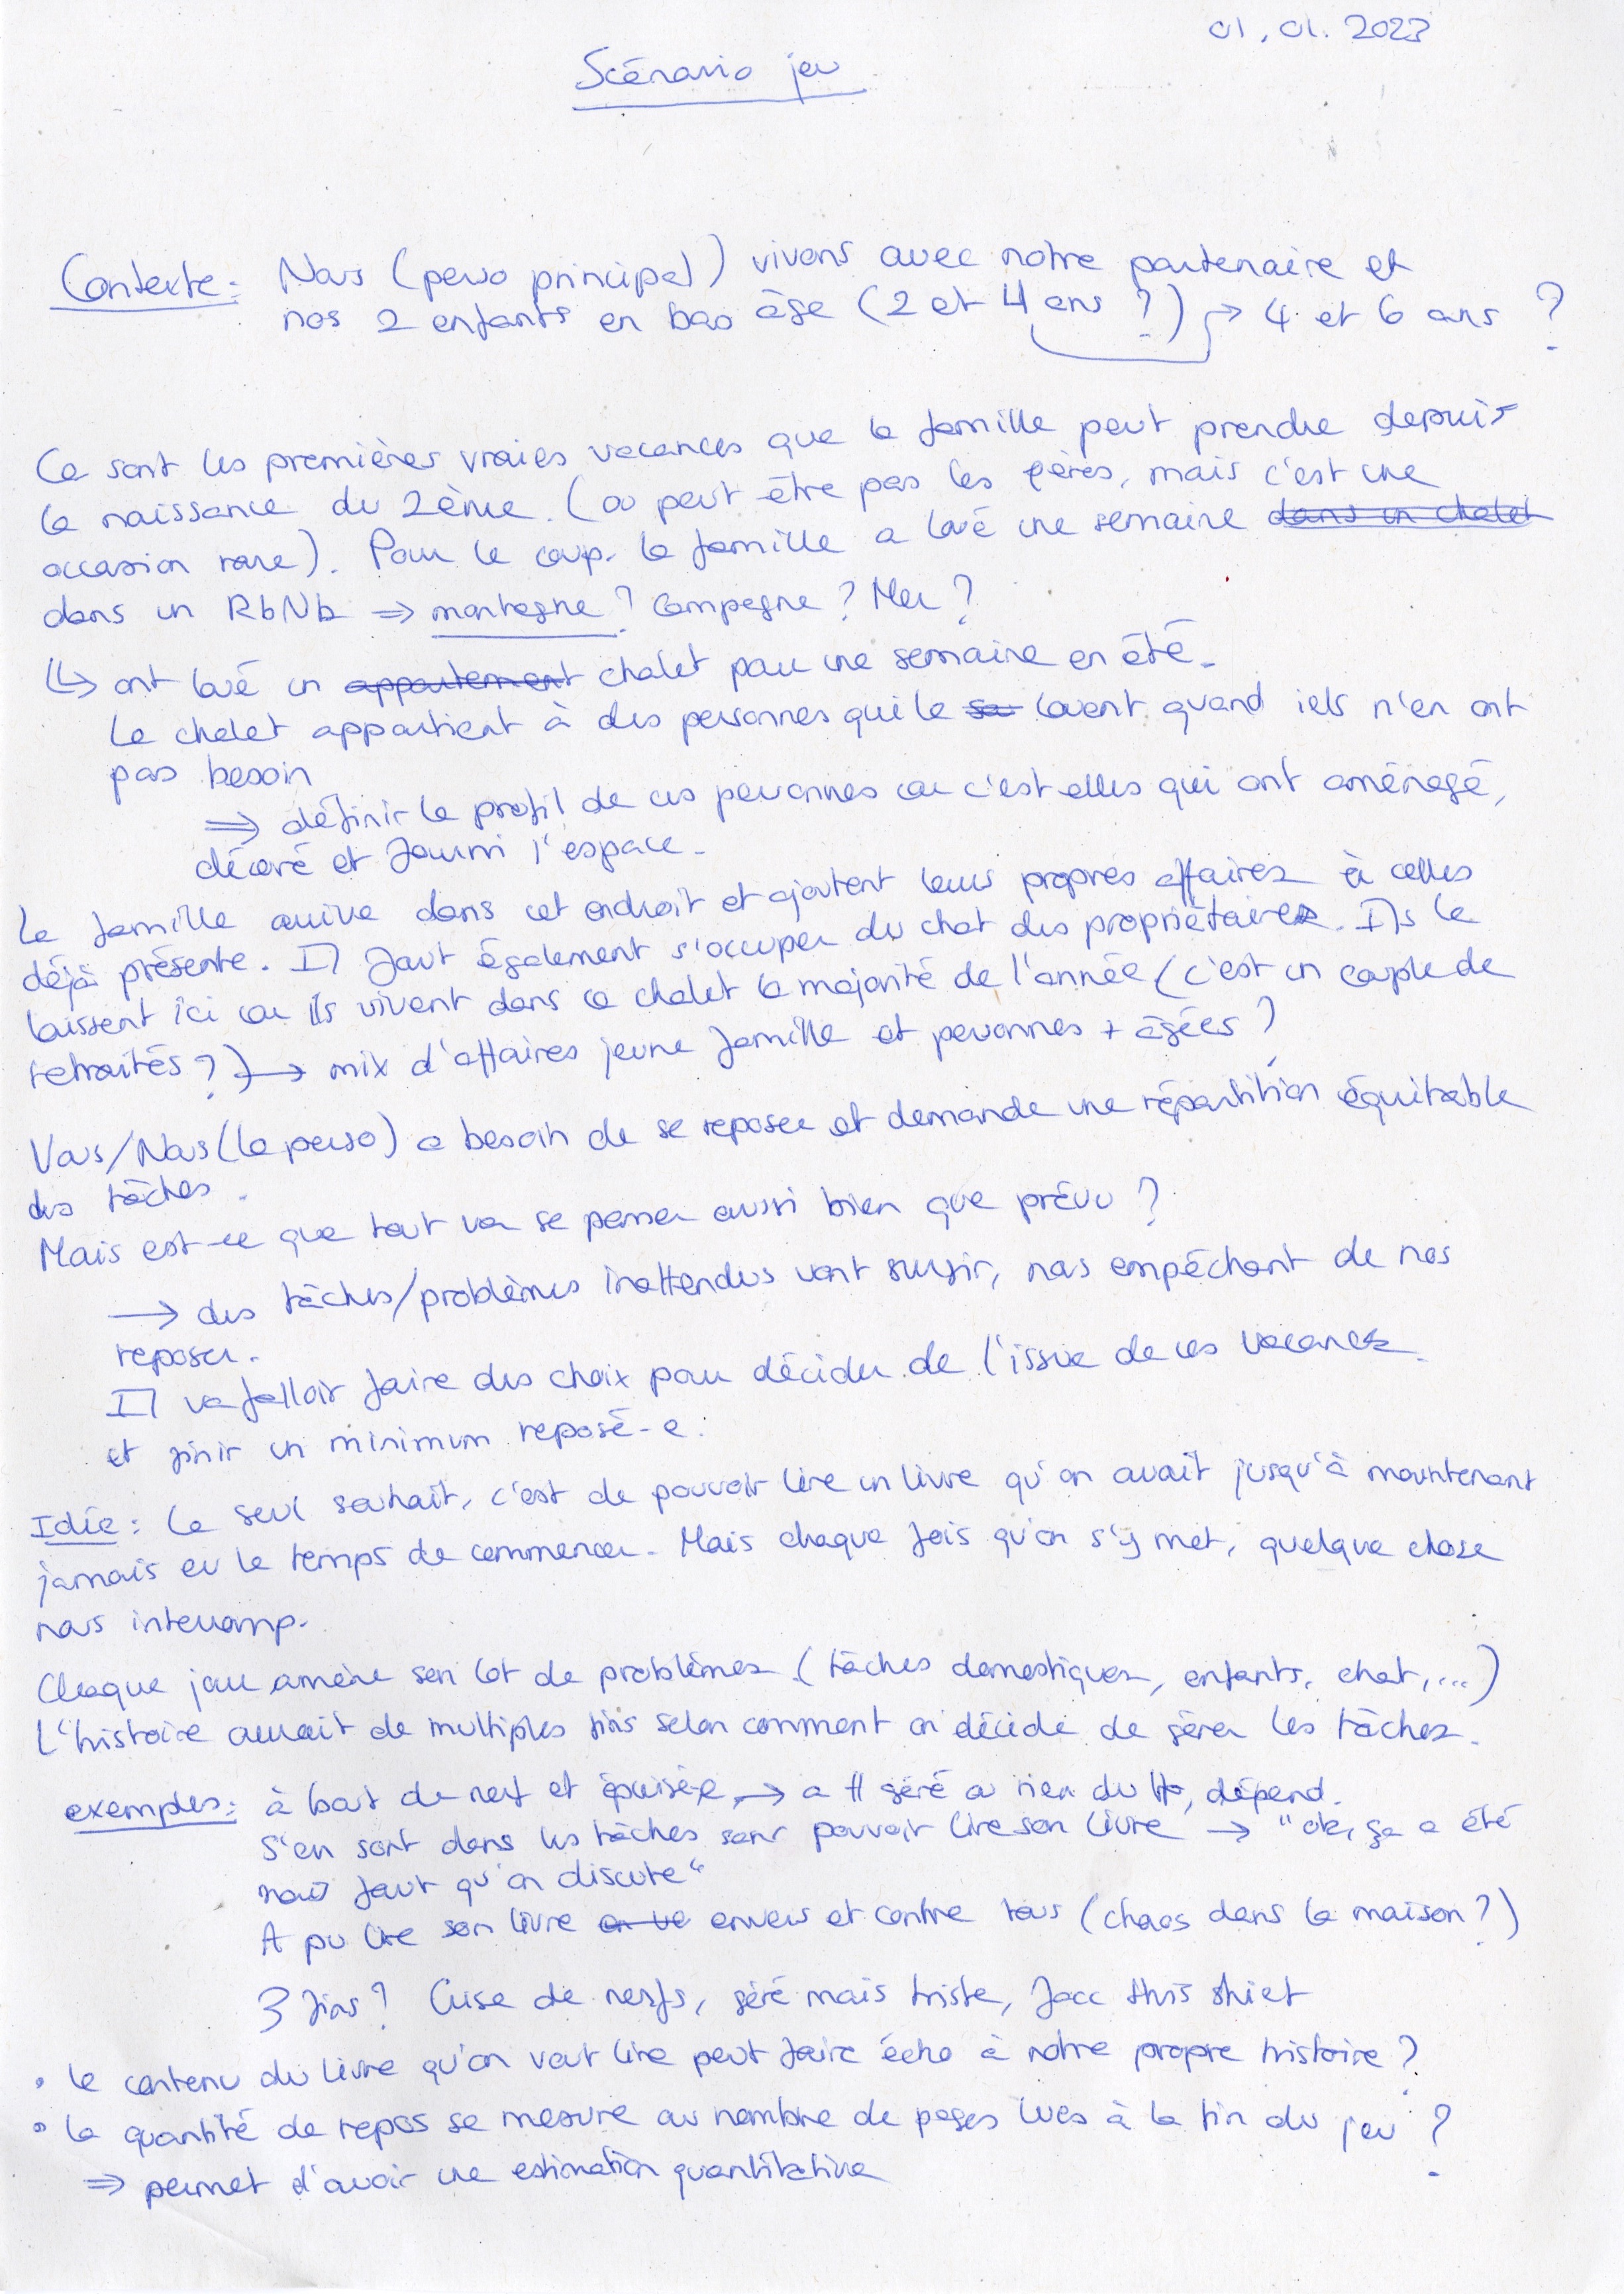 01.01.2023
Scénario jeu
Contexte: Nous (perso principal) vivons avec notre partenaire et
nos 2 enfants en bas âge (2 et 4 ans ?) → 4 et 6 ans ?
Ce sont les premières vraies vacances que la famille peut prendre depuis
la naissance du 2ème. (ou peut être pas les 1ères, mais c'est une
occasion rare). Pour le coup, la famille a loué une semaine dans un chalet
dans un RbNb ⇒ montagne ? Campagne ? Mer ?
↳ ont loué un appartement chalet pour une semaine en été.
Le chalet appartient à des personnes qui le louent quand iels n'en ont
pas besoin
⇒ définir le profil de ces personnes car c'est elles qui ont aménagé,
décoré et fourni l'espace.
La famille arrive dans cet endroit et ajoutent leurs propres affaires à celles
déjà présente. Il faut également s'occuper du chat des propriétaires. Ils le
laissent ici car ils vivent dans ce chalet la majorité de l'année (c'est un couple de
retraités ?) → mix d'affaires jeune famille et personnes + âgées ?
Vous/Nous (le perso) a besoin de se reposer et demande une répartition équitable
des tâches.
Mais est-ce que tout va se passer aussi bien que prévu ?
→ des tâches/problèmes inattendus vont surgir, nous empêchant de nos
reposer.
Il va falloir faire des choix pour décider de l'issue de ces vacances
et finir un minimum reposé-e.
Idée: Le seul souhait, c'est de pouvoir lire un livre qu'on avait jusqu'à maintenant
jamais eu le temps de commencer. Mais chaque fois qu'on s'y met, quelque chose
nous interromp.
Chaque jour amène son lot de problèmes (tâches domestiques, enfants, chat,...)
L'histoire aurait de multiples fins selon comment on décide de gérer les tâches.
exemples: à bout de nerf et épuisé-e → a tt géré ou rien du tt, dépend.
S'en sort dans les tâches sans pouvoir lire son livre → "ok, ça a été
mais faut qu'on discute"
A pu lire son livre envers et contre tous (chaos dans la maison ?)
3 fins ? Crise de nerfs, géré mais triste, this shiet
• le contenu du livre qu'on veut lire peut faire écho à notre propre histoire ?
• la quantité de repos se mesure au nombre de pages lues à la fin du jeu ?
⇒ permet d'avoir une estimation quantitative